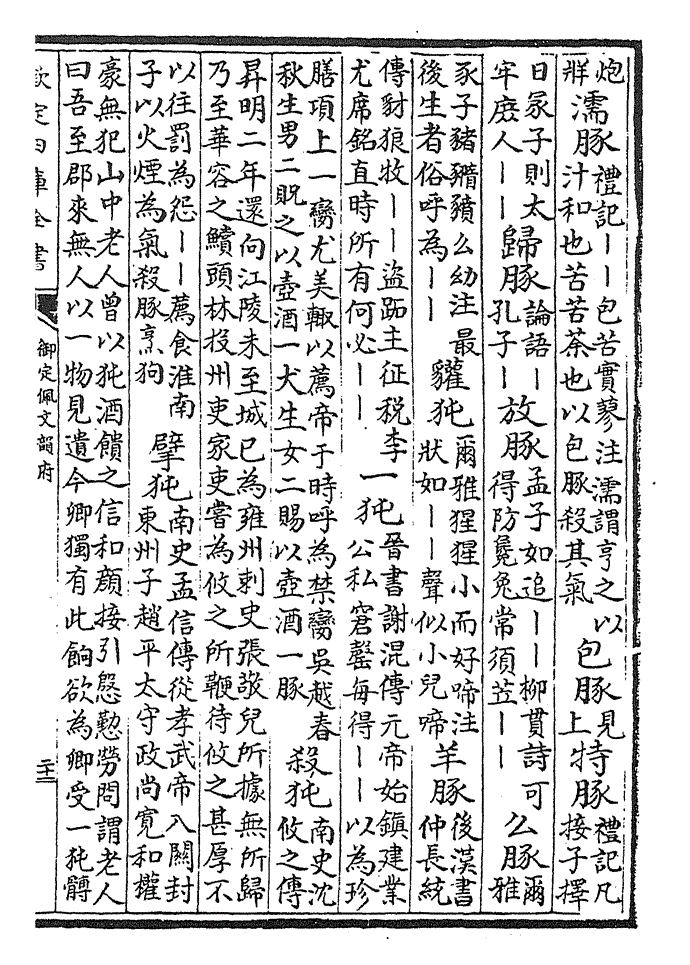 炮牂 濡豚 禮記——包苦實蓼注濡謂亨之以汁和也苦苦荼也以包豚殺其氣 包豚 見上 特豚 禮記凡接子擇
日冢子則太牢庶人—— 歸豚 論語—孔子— 放豚 孟子如追——柳貫詩可得防毚兔常須苙—— 么豚 爾雅
豕子豬豶豮么幼注最後生者俗呼為—— 貛㹠 爾雅猩猩小而好啼注狀如——聲似小兒啼 羊豚 後漢書仲長統
傳豺狼牧——盜跖主征税李尤席銘直時所有何必—— 一㹠 晉書謝混傳元帝始鎮建業公私窘罄每得——以為珍
膳項上一臠尤美輙以薦帝于時呼為禁臠吳越春秋生男二貺之以壺酒一犬生女二賜以壺酒一豚 殺㹠 南史沈攸之傳
昇明二年還向江陵未至城已為雍州刺史張敬兒所據無所歸乃至華容之鱝頭林投州吏家吏嘗為攸之所鞭待攸之甚厚不
以往罰為怨——薦食淮南子以火煙為氣殺豚烹狗 擘㹠 南史孟信傳從孝武帝入關封東州子趙平太守政尚寛和權
豪無犯山中老人曾以㹠酒饋之信和顔接引慇懃勞問謂老人曰吾至郡來無人以一物見遺今卿獨有此餉欲為卿受一㹠髆
欽定四庫全書
御定佩文韻府